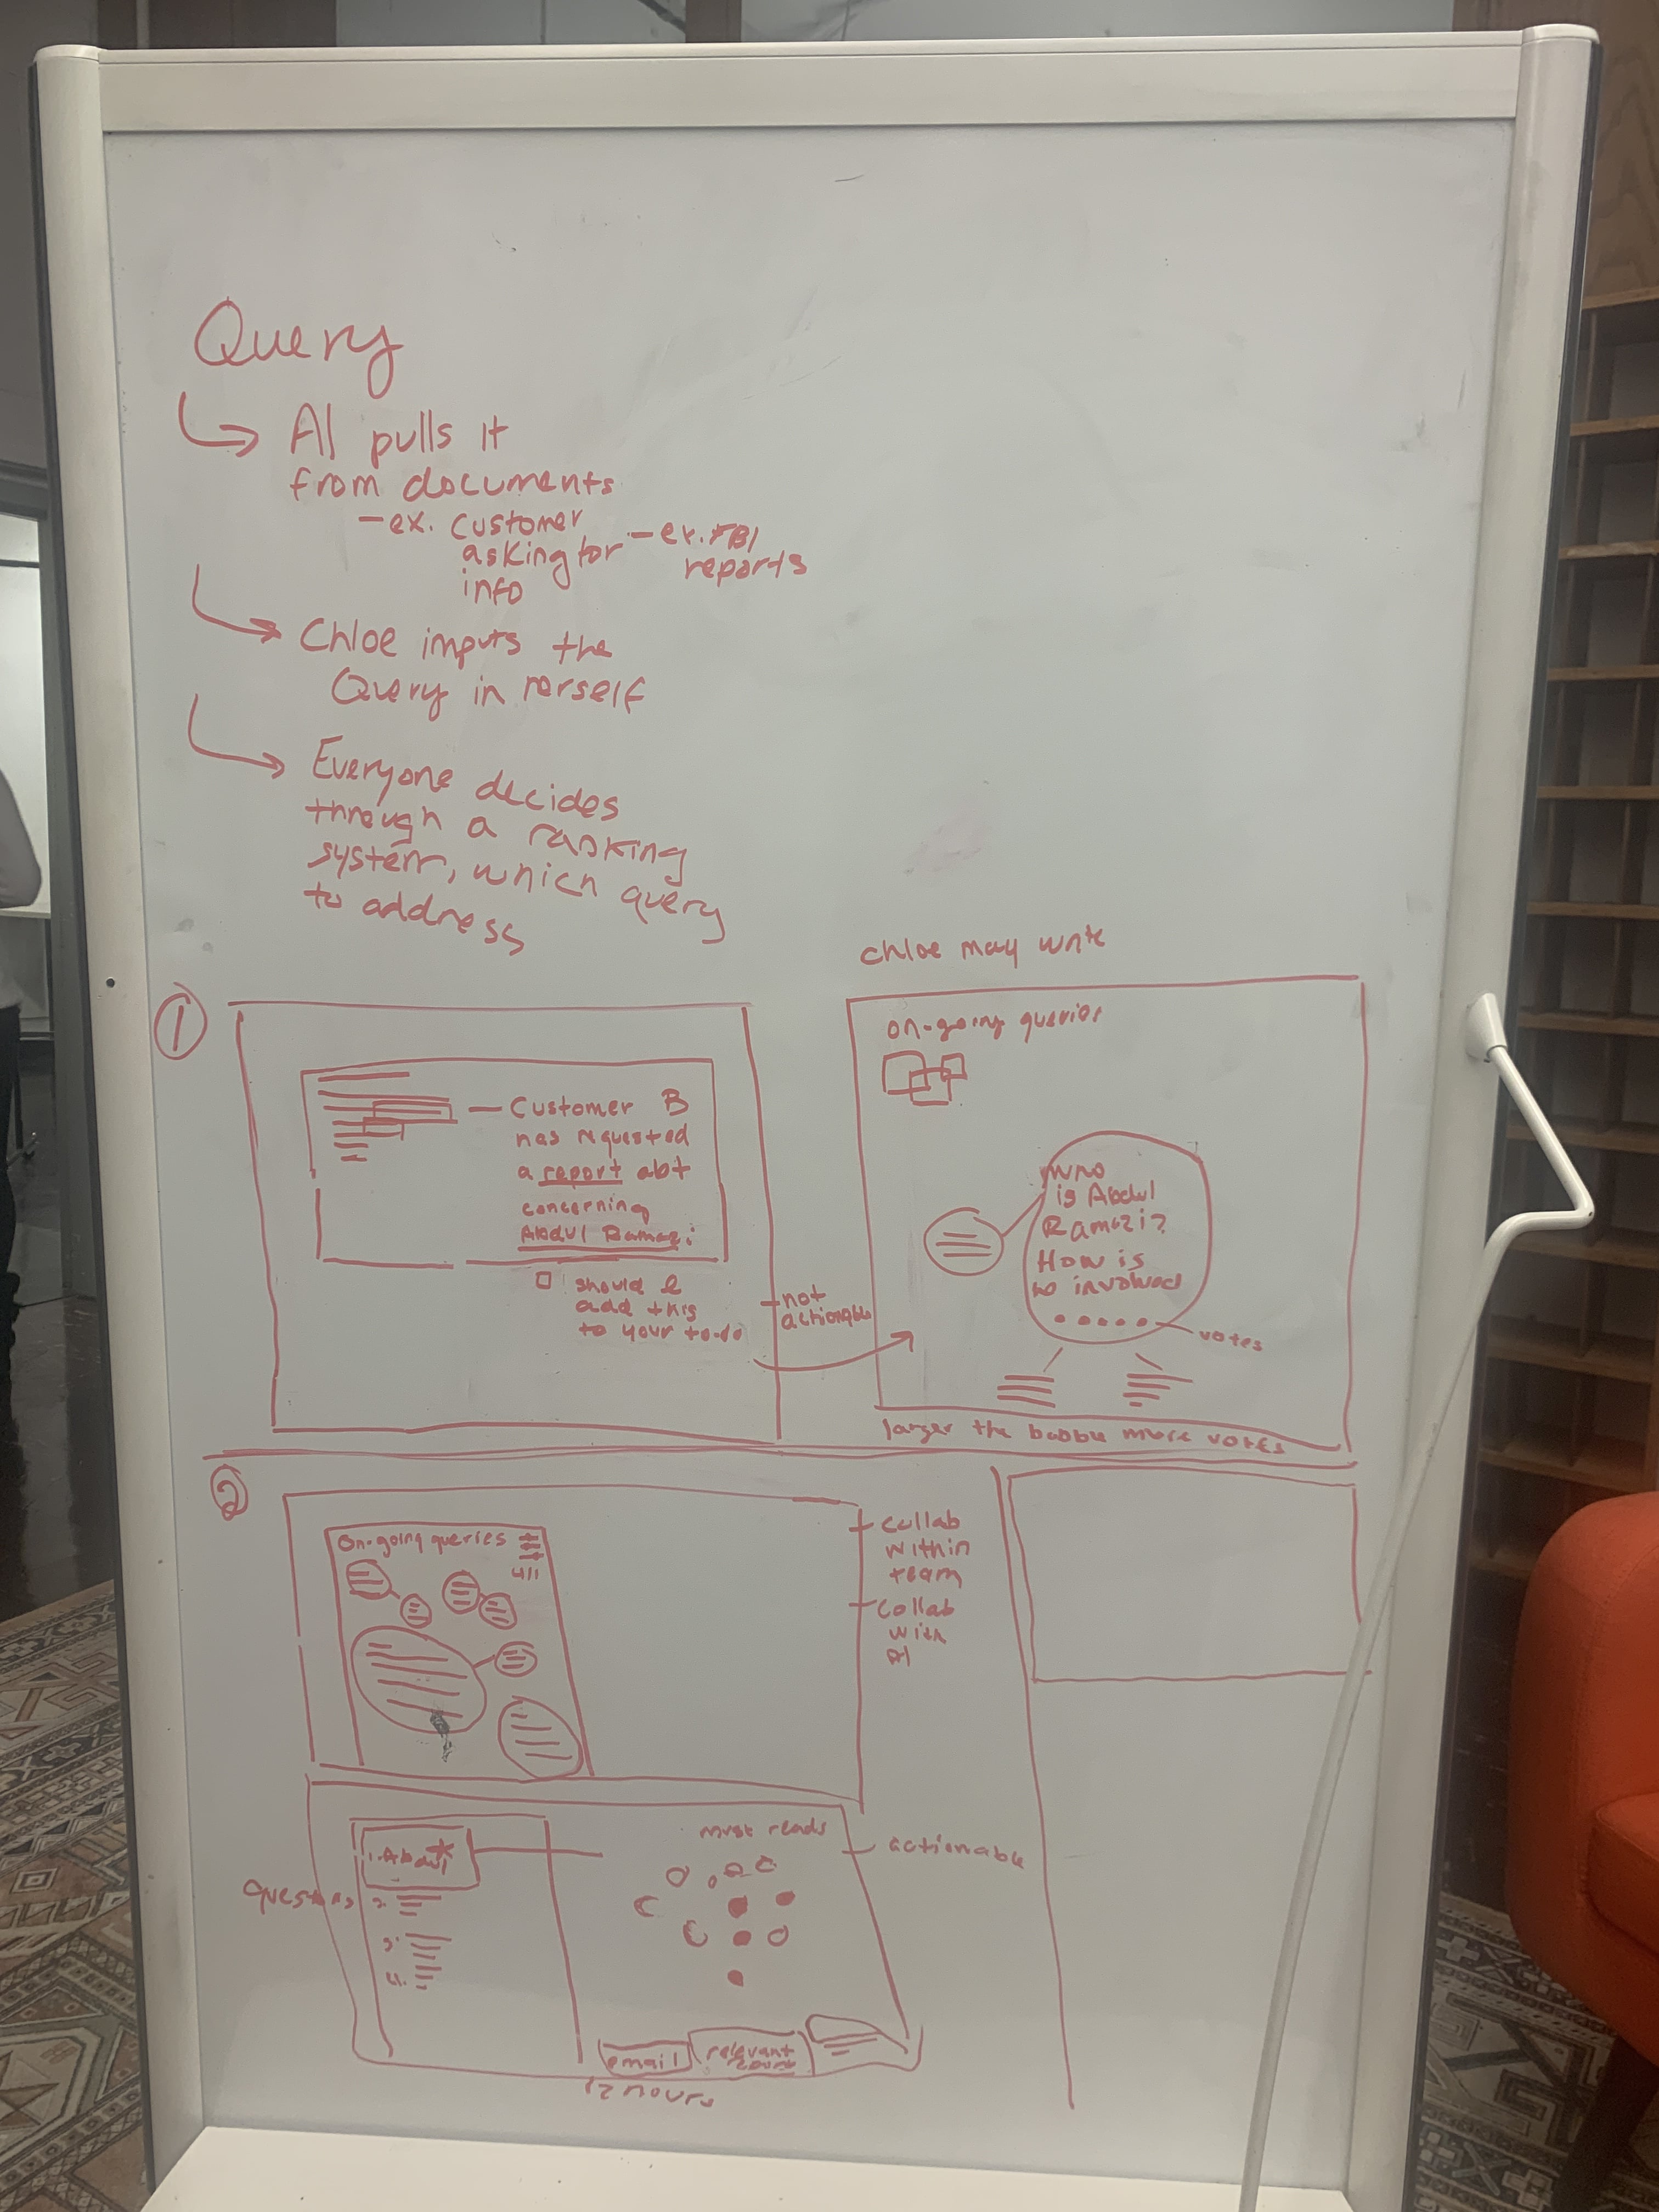 Query
AI pulls it
from documents
- ex. customer
asking for
info
- ex. FBI
reports
Chloe inputs the
Query in herself
Everyone decides
through a ranking
system, which query
to address
1
Customer B
has requested
a report abt
concerning
Abdul Ramazi
should I
add this
to your to-do
not
actionable
chloe may write
on-going queries
who
is Abdul
Ramazi?
How is
involved
votes
larger the bubble more votes
2
On-going queries
4/1
collab
within
team
collab
with
AI
Questions
1. Abdul *
2.
3.
4.
must reads
actionable
email
relevant
12 hours